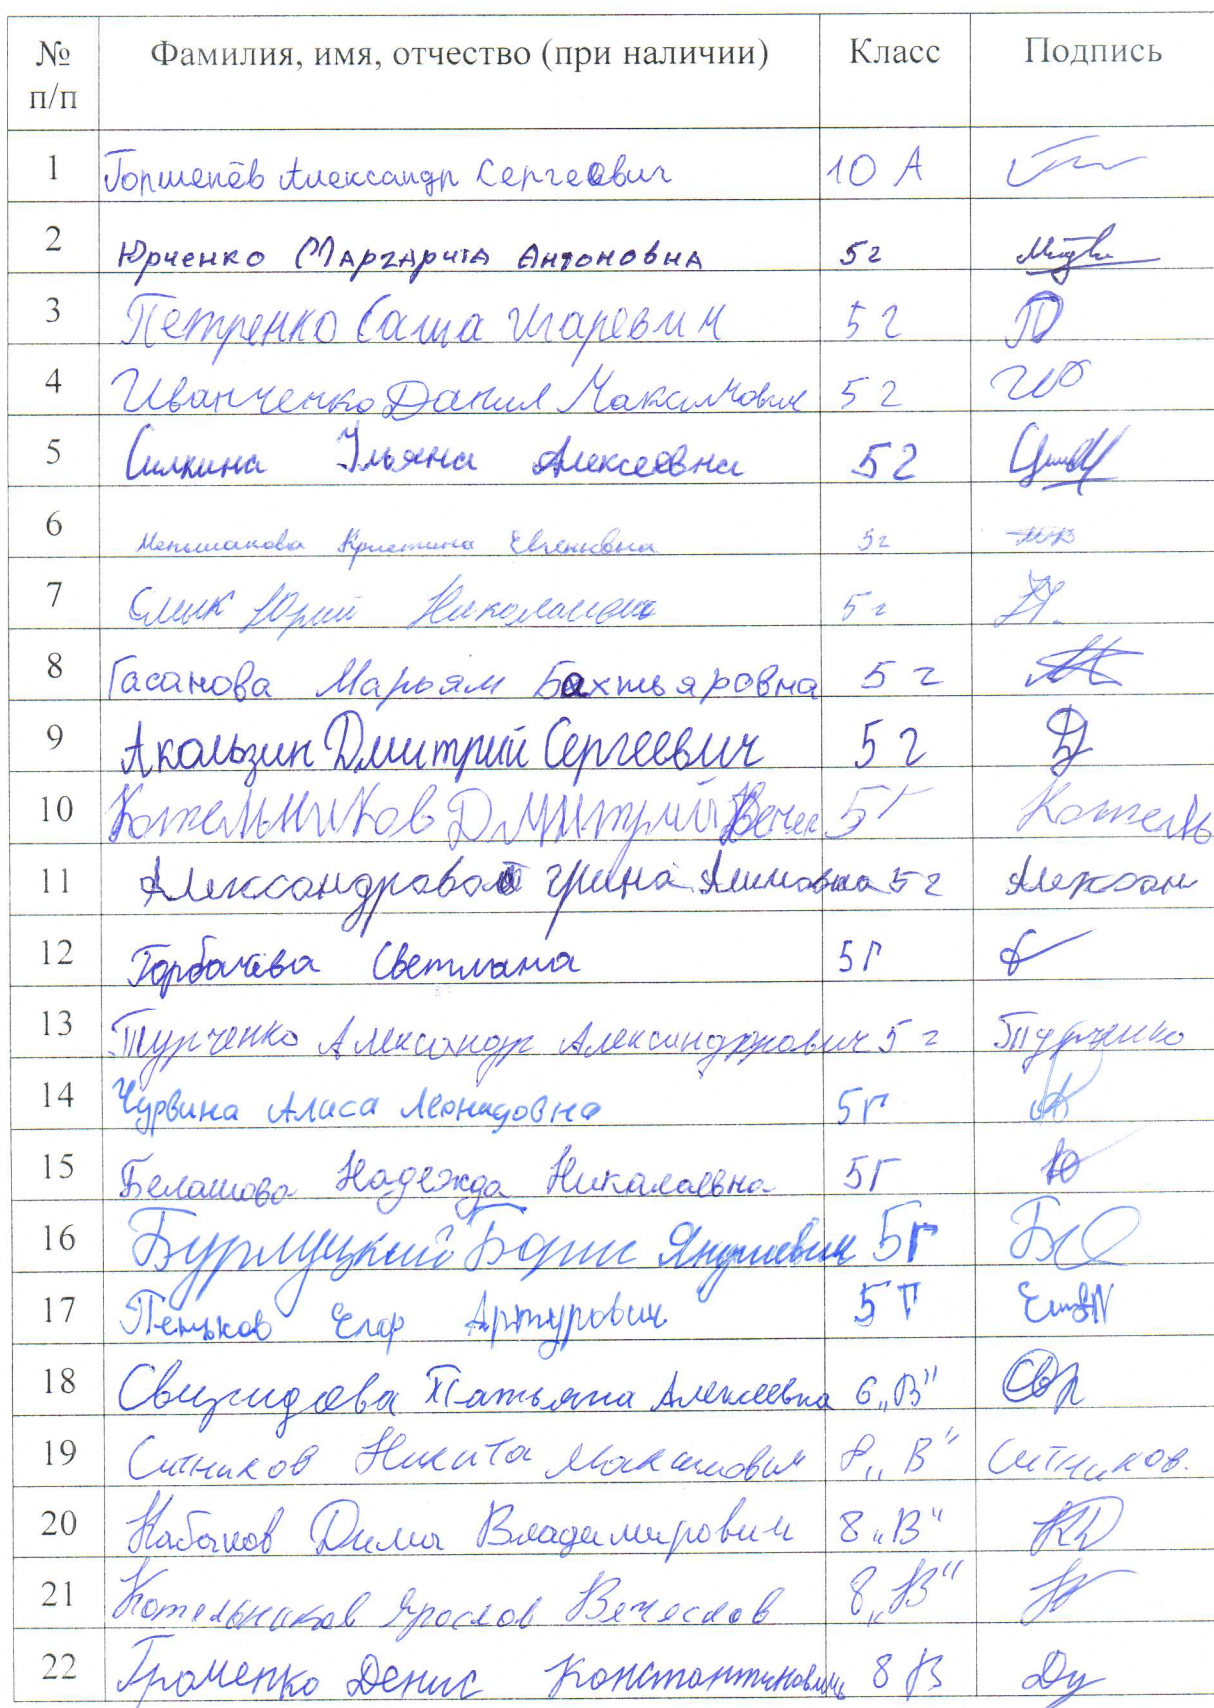 № п/п Фамилия, имя, отчество (при наличии) Класс Подпись
1 Горшенёв Александр Сергеевич 10 А
2 Юрченко Маргарита Антоновна 5г
3 Петренко Саша Игаревич 5 г П
4 Иванченко Данил Максимович 5 г
5 Силкина Ульяна Алексеевна 5 г
6 Меньшакова Кристина Евгенивна 5г
7 Смык Юрий Николаевич 5 г
8 Гасанова Марьям Бахтьяровна 5 г
9 Акользин Дмитрий Сергеевич 5 г
10 Котельников Дмитрий Вечес 5Г Котель
11 Александрова Ирина Алимовна 5 г Алексан
12 Горбачёва Светлана 5Г
13 Турченко Александр Александррович 5 г Турченко
14 Чурвина Алиса Леонидовна 5г
15 Белашова Надежда Никалаевна 5Г
16 Бурлуцкий Борис 5г
17 Пеньков Егор Артурович 5 Г
18 Татьяна Алексеевна 6 „В"
19 Ситников Никита Максимович 8 „В" Ситников.
20 Набоков Дима Владимирович 8 „В"
21 Котельников Ярослов Вечеслов 8 „В"
22 Громенко Денис Константинович 8 В